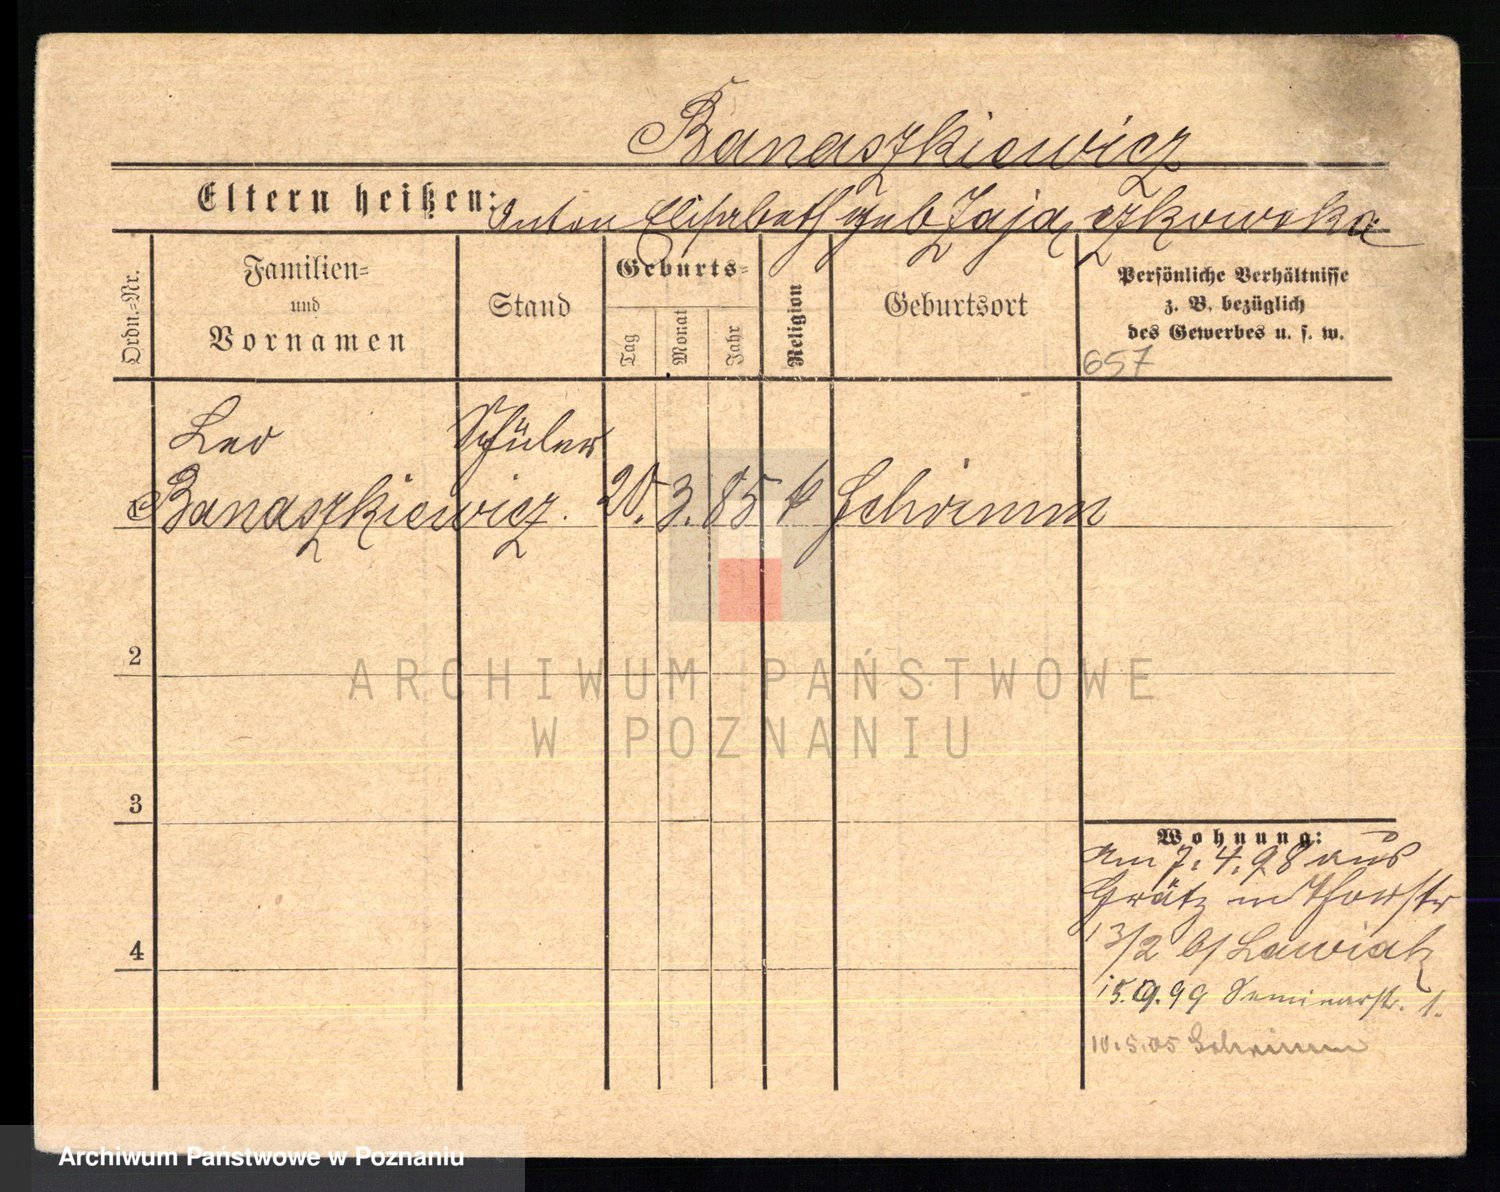 Banaszkiewicz
Eltern heißen: Anton Elisabeth geb Zajączkowska
Ordn.-Nr.
Familien-
und
Vornamen
Stand
Geburts-
Tag
Monat
Jahr
Religion
Geburtsort
Persönliche Verhältnisse
z. B. bezüglich
des Gewerbes u. s. w.
657
Leo Schüler
Banaszkiewicz. 20. 3. 85 k Schrimm
2
ARCHIWUM PAŃSTWOWE
W POZNANIU
3
Wohnung:
am 7. 4. 98 aus
Grätz Thorstr
13/2 b/ Lawiak
4
15.9.99 Seminarstr. 1.
10.5.05 Schrimm
Archiwum Państwowe w Poznaniu